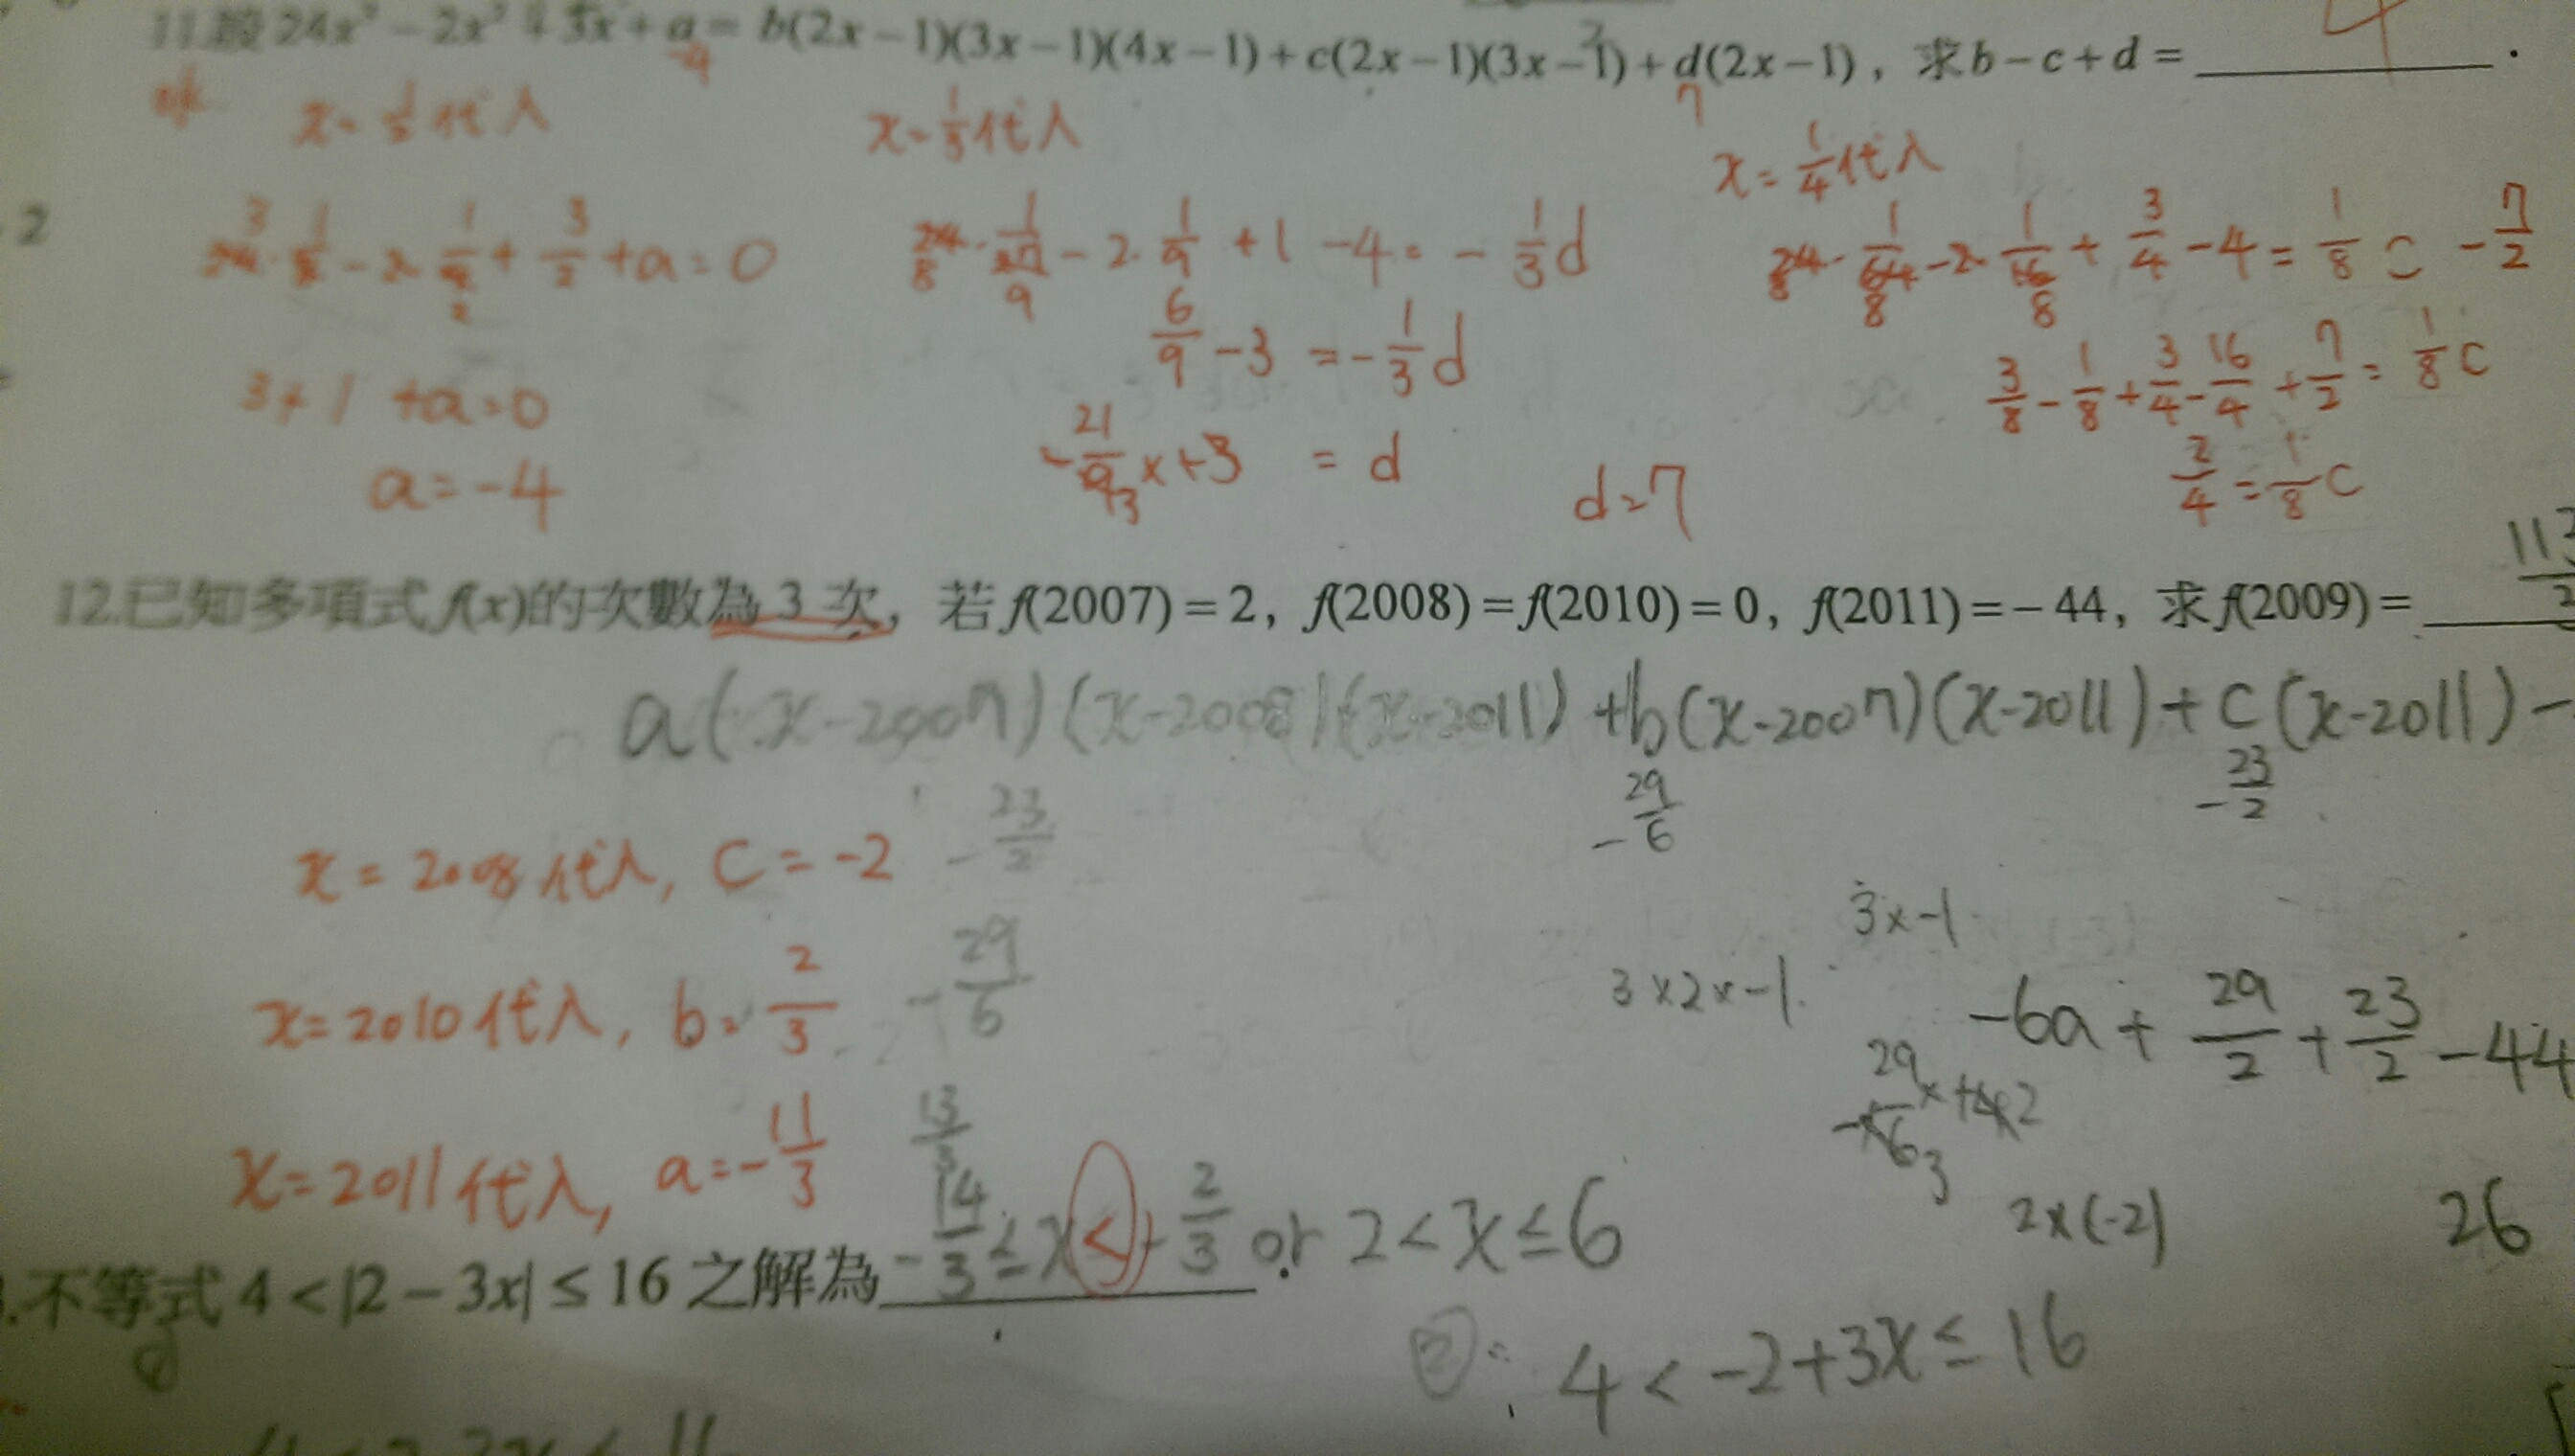 11.設 24x³ − 2x² + 3x + a = b(2x − 1)(3x − 1)(4x − 1) + c(2x − 1)(3x − 1) + d(2x − 1)，求 b − c + d = 4 .
-4 2 7
x = 1/2 代入
3/24 · 1/8 − 2 · 1/4 + 3/2 + a = 0
2
3 + 1 + a = 0
a = −4
x = 1/3 代入
24 · 1/27 − 2 · 1/9 + 1 − 4 = − 1/3 d
8 9
6/9 − 3 = − 1/3 d
− 21/9 x + 3 = d
3
d = 7
x = 1/4 代入
24 · 1/64 − 2 · 1/16 + 3/4 − 4 = 1/8 c − 7/2
8 8
3/8 − 1/8 + 3/4 − 16/4 + 7/2 = 1/8 c
2/4 = 1/8 c
2
12.已知多項式 f(x)的次數為 3 次，若 f(2007) = 2，f(2008) = f(2010) = 0，f(2011) = − 44，求 f(2009) =
a(x-2007)(x-2008)(x-2011) + b(x-2007)(x-2011) + c(x-2011) −
− 29/6 − 23/2
x = 2008 代入, c = −2 − 23/2
x = 2010 代入, b = 2/3 − 29/6
x = 2011 代入, a = − 11/3
3 x −1
3 x 2 x −1
−6a + 29/2 + 23/2 − 44
2 x (−2) 26
不等式 4 < |2 − 3x| ≤ 16 之解為 − 14/3 ≤ x < − 2/3 or 2 < x ≤ 6
② : 4 < −2 + 3x ≤ 16